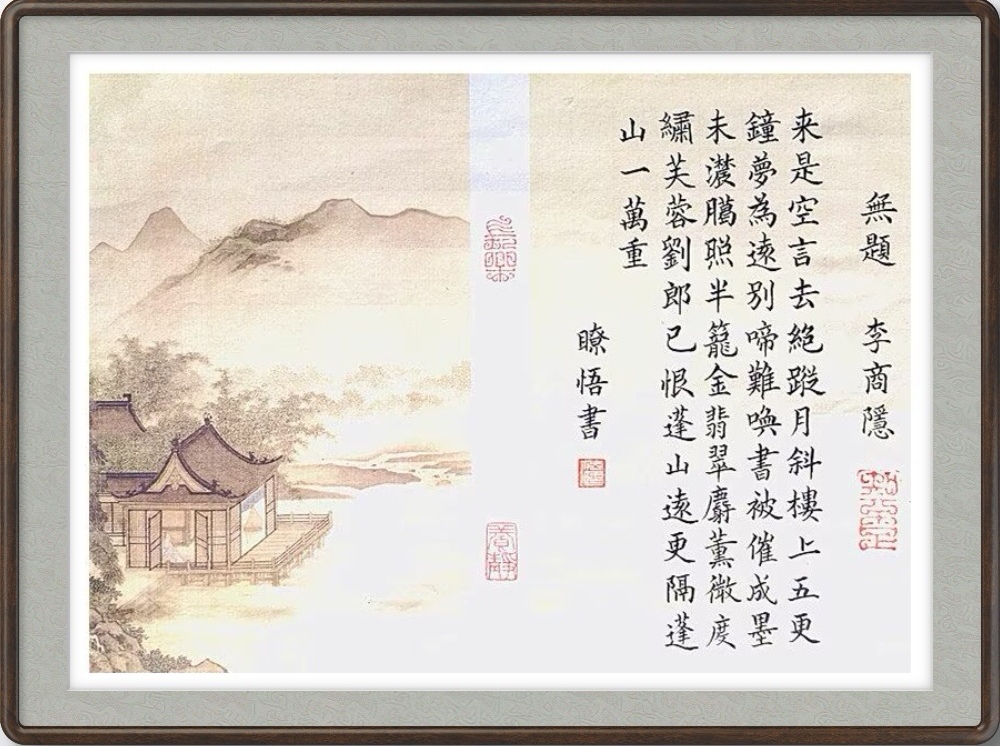 無題 李商隱
来是空言去絕蹤月斜樓上五更
鐘夢為遠別啼難喚書被催成墨
未濃臈照半籠金翡翠麝薰微度
繡芙蓉劉郎已恨蓬山遠更隔蓬
山一萬重
瞭悟書